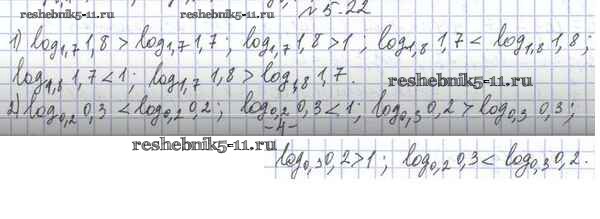 № 5-22
reshebnik5-11.ru
1) log₁,₇ 1,8 > log₁,₇ 1,7 ; log₁,₇ 1,8 > 1 ; log₁,₈ 1,7 < log₁,₈ 1,8 ;
log₁,₈ 1,7 < 1 ; log₁,₇ 1,8 > log₁,₈ 1,7 .
reshebnik5-11.ru
2) log₀,₂ 0,3 < log₀,₂ 0,2 ; log₀,₂ 0,3 < 1 ; log₀,₃ 0,2 > log₀,₃ 0,3 ;
-4-
reshebnik5-11.ru
log₀,₃ 0,2 > 1 ; log₀,₂ 0,3 < log₀,₃ 0,2 .
reshebnik5-11.ru